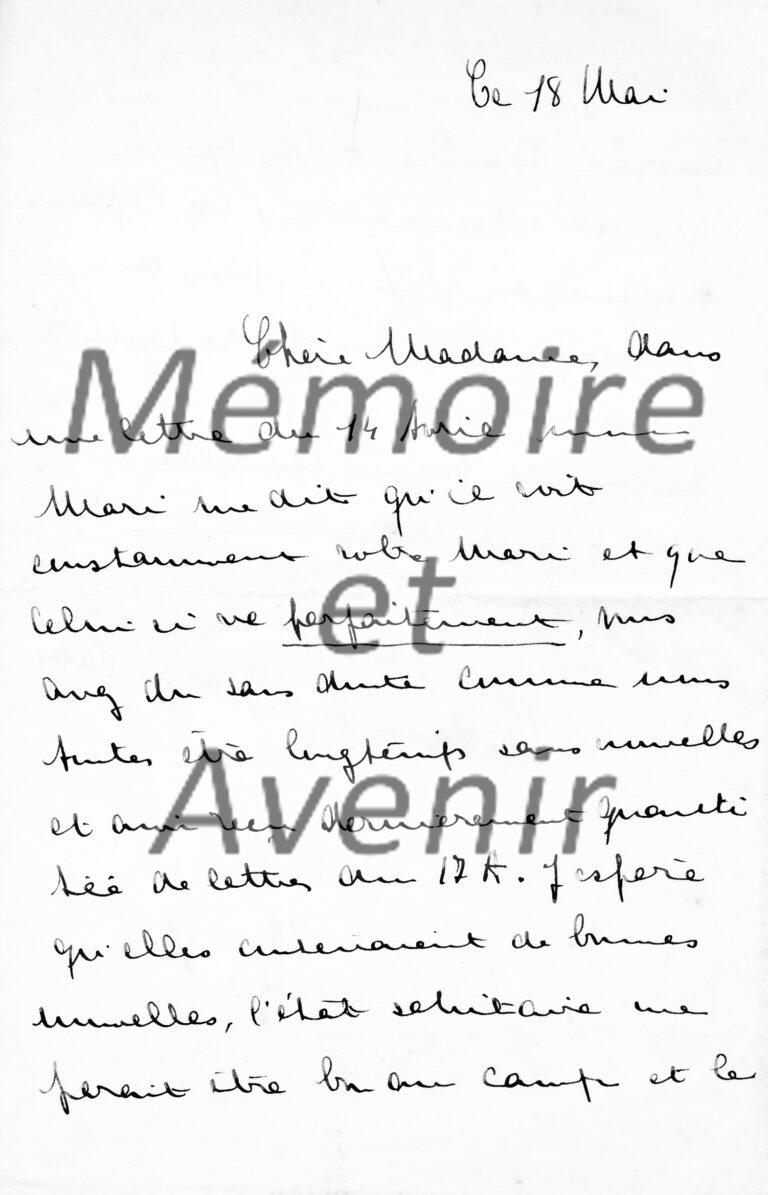 Ce 18 Mai
Chère Madame, dans
une lettre du 14 Avril mon
Mari me dit qu'il voit
constamment votre Mari et que
celui ci va parfaitement, vous
avez du sans doute comme nous
toutes être longtemps sans nouvelles
et avoir reçu dernièrement quanti
té de lettres du 17 A. J'espère
qu'elles contenaient de bonnes
nouvelles, l'état sanitaire me
parait être bon au camp et le
Mémoire
et
Avenir